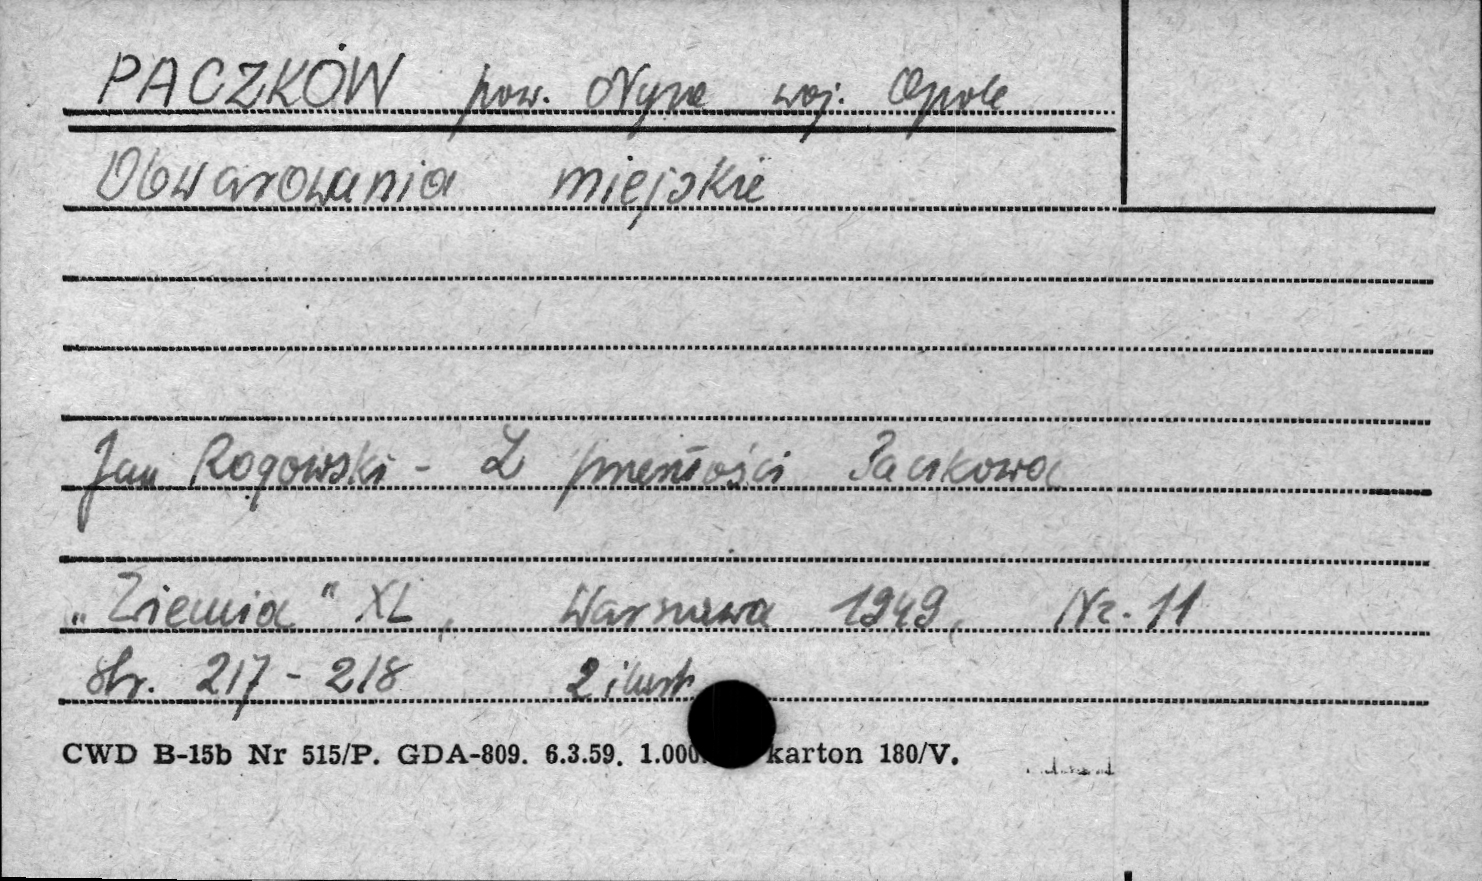 PACZKÓW pow. Nysa woj. Opole
Obwarowania miejskie
Jan Rogowski - Z przeszłości Paczkowa
„Ziemia" XL, Warszawa 1949, Nr. 11
str. 217 - 218 2 ilustr.
CWD B-15b Nr 515/P. GDA-809. 6.3.59. 1.000. karton 180/V.